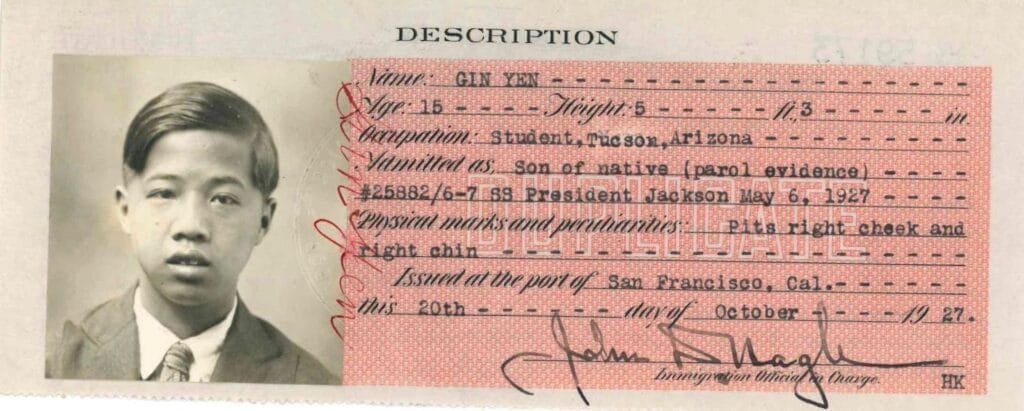 DESCRIPTION
Name: GIN YEN - - - - - - - - - - - - - - - - - - -
Age: 15 - - - - Height: 5 - - - - - ft., 3 - - - - - in.
Occupation: Student, Tucson, Arizona - - - - - - - - - -
Admitted as, Son of native (parol evidence) - - - -
#25882/6-7 SS President Jackson May 6, 1927 - - - -
Physical marks and peculiarities: Pits right cheek and
right chin - - - - - - - - - - - - - - - - - - - - - -
Issued at the port of San Francisco, Cal. - - - - - -
this 20th - - - - - - day of October - - - - 1927.
John D Nagle
Immigration Official in Charge.
HK
Gin Yen
DUPLICATE